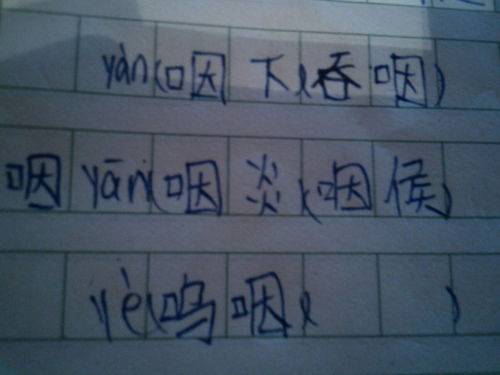 yàn(咽下)(吞咽)
咽 yān(咽炎)(咽侯)
yè(呜咽)( )